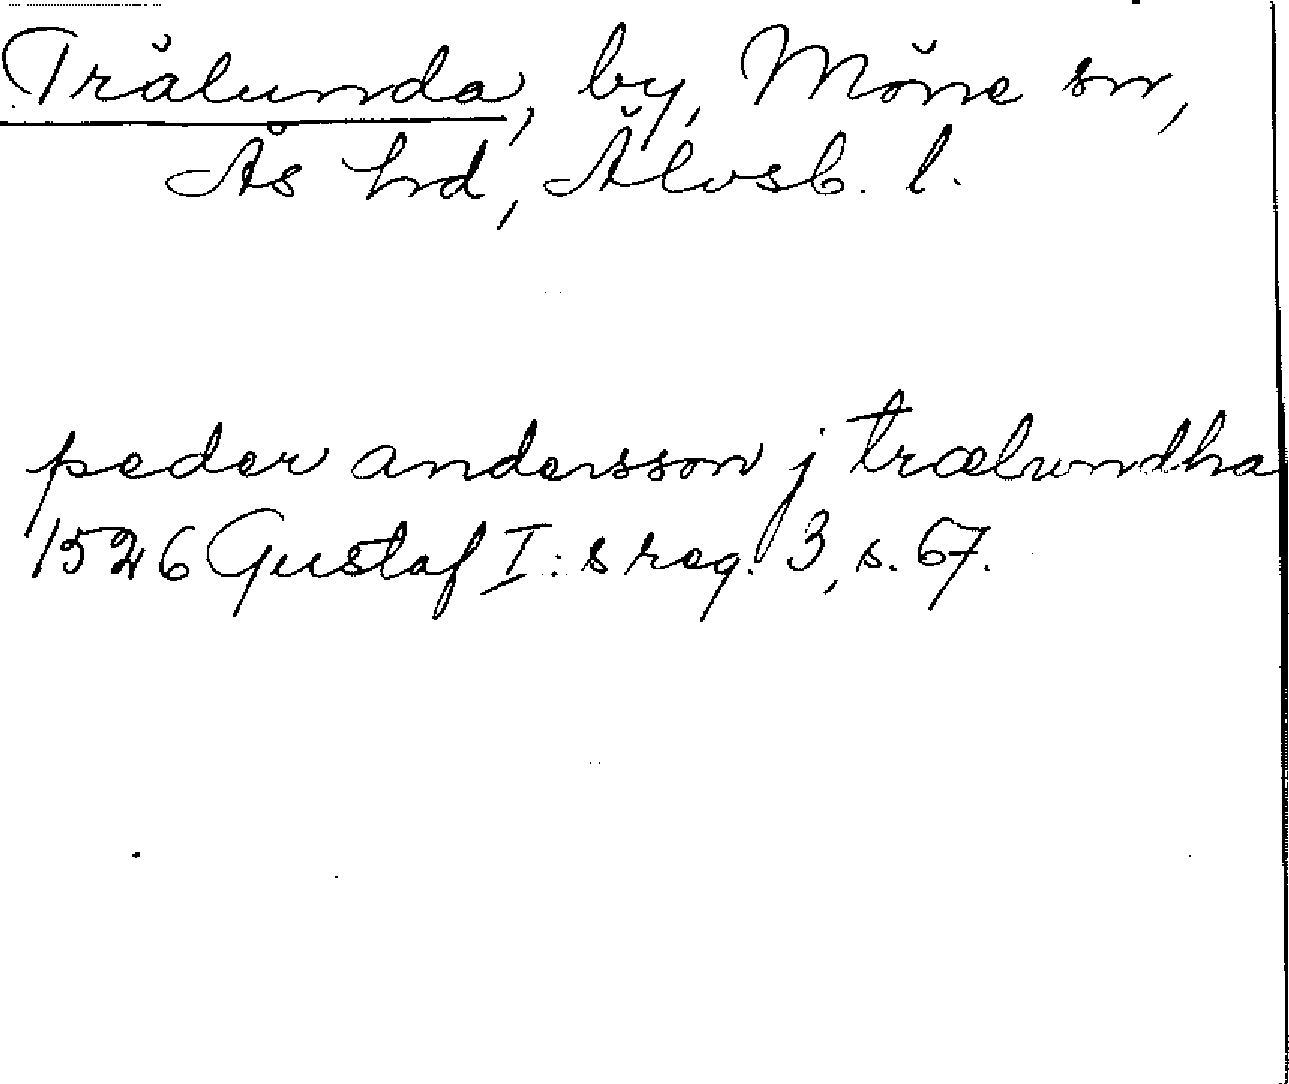 Trälunda, by, Möne sn,
Ås hd, Älvsb. l.
peder andersson j trælwndha
1526 Gustaf I:s reg. 3, s. 67.